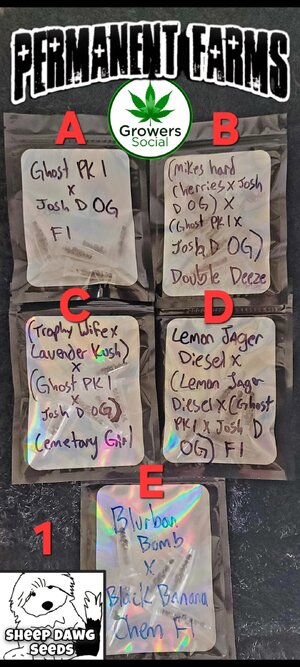 PERMANENT FARMS
Growers
Social
A
B
Ghost PK 1
x
Josh D OG
F1
(Mikes hard
cherries x Josh
D OG) x
(Ghost PK1 x
Josh D OG)
Double Deeze
C
D
(Trophy Wife x
Lavender Kush)
x
(Ghost PK 1
x
Josh D OG)
Cemetary Girl
Lemon Jager
Diesel x
(Lemon Jager
Diesel x (Ghost
PK 1 x Josh D
OG) F1
E
1
Blurbon
Bomb
x
Black Banana
Chem F1
SHEEP DAWG
SEEDS